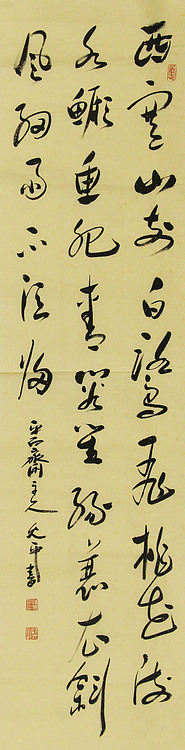 西塞山前白鷺飛桃花流
水鱖魚肥青箬笠綠蓑衣斜
風細雨不須歸
齋主人平書